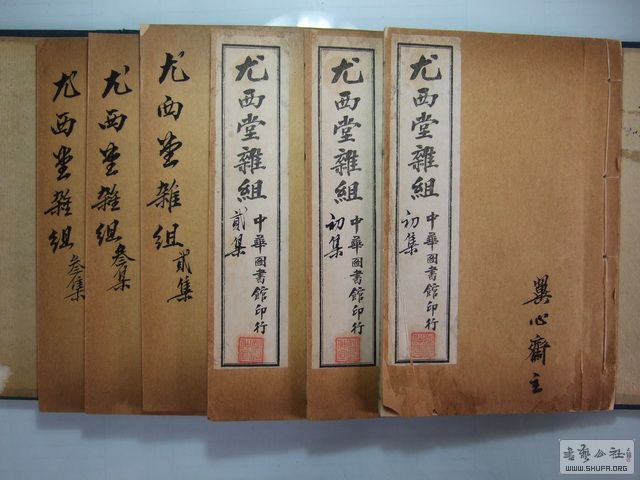 尤西堂雜組
初集
中華圖書館印行
巽心齋主
尤西堂雜組
初集
中華圖書館印行
尤西堂雜組
貳集
中華圖書館印行
尤西堂雜組
貳集
尤西堂雜組
叁集
尤西堂雜組
叁集
書法公社
WWW.SHUFA.ORG